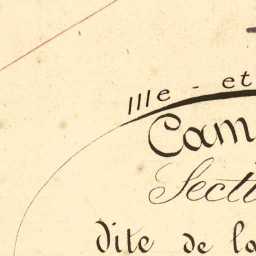 Ille - et
Cam
Secti
dite de la